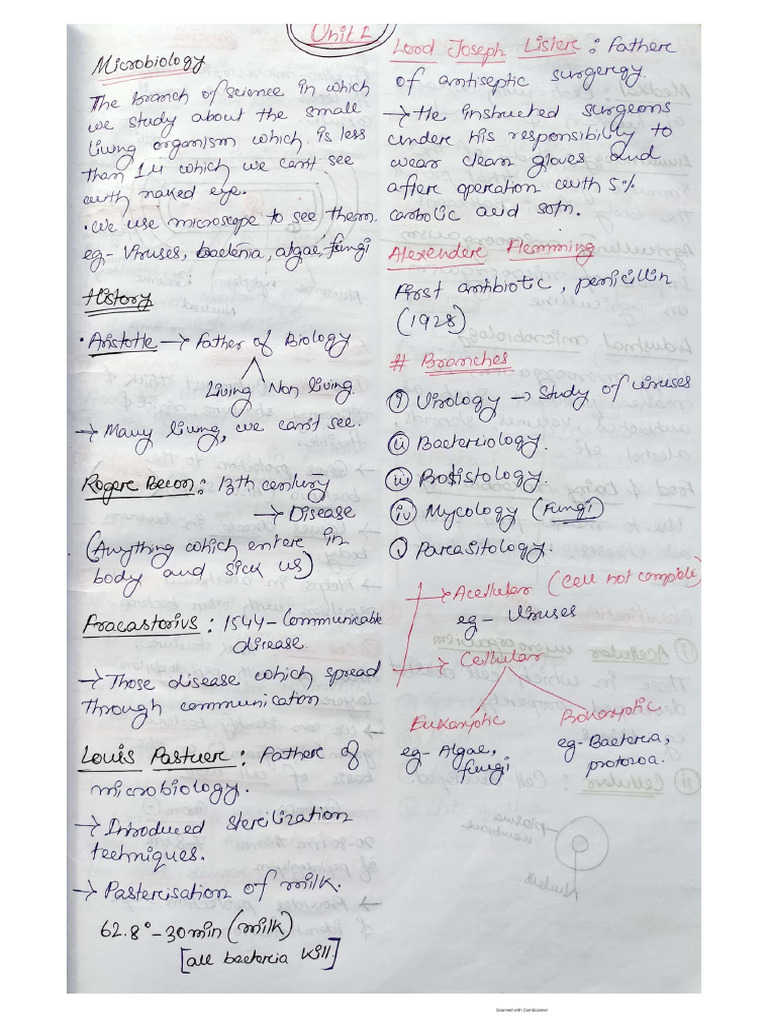 Unit I
Microbiology
The branch of science in which
we study about the small
living organism which is less
than 1µ which we can't see
with naked eye.
• We use microscope to see them.
eg- Viruses, bacteria, algae, fungi
History
• Aristotle → Father of Biology
Living Non living.
→ Many living, we can't see.
Rogere Becon: 13th century
→ Disease
(Anything which entere in
body and sick us)
Fracastorius: 1544- Communicable
disease.
→ Those disease which spread
through communication
Louis Pastuere: Fathere of
microbiology.
→ Introduced sterilization
techniques.
→ Pastercisation of milk.
62.8° - 30min (milk)
[all bactercia kill]
Lord Joseph Listere: fathere
of antiseptic surgeregy.
→ He instructed surgeons
undere his responsibility to
wear clean gloves and
aftere operation with 5%
carbolic acid soln.
Alexendere Flemming
First antibiotic, penicillin
(1928)
# Branches
(i) Virology → Study of viruses
(ii) Bacteriology.
(iii) Protistology.
(iv) Mycology (Fungi)
(v) Parasitology.
→ Acellular (Cell not complete)
eg - Viruses
→ Cellular
Eukaryotic Prokaryotic
eg- Algae, eg- Bactercia,
fungi protozoa.
Scanned with CamScanner